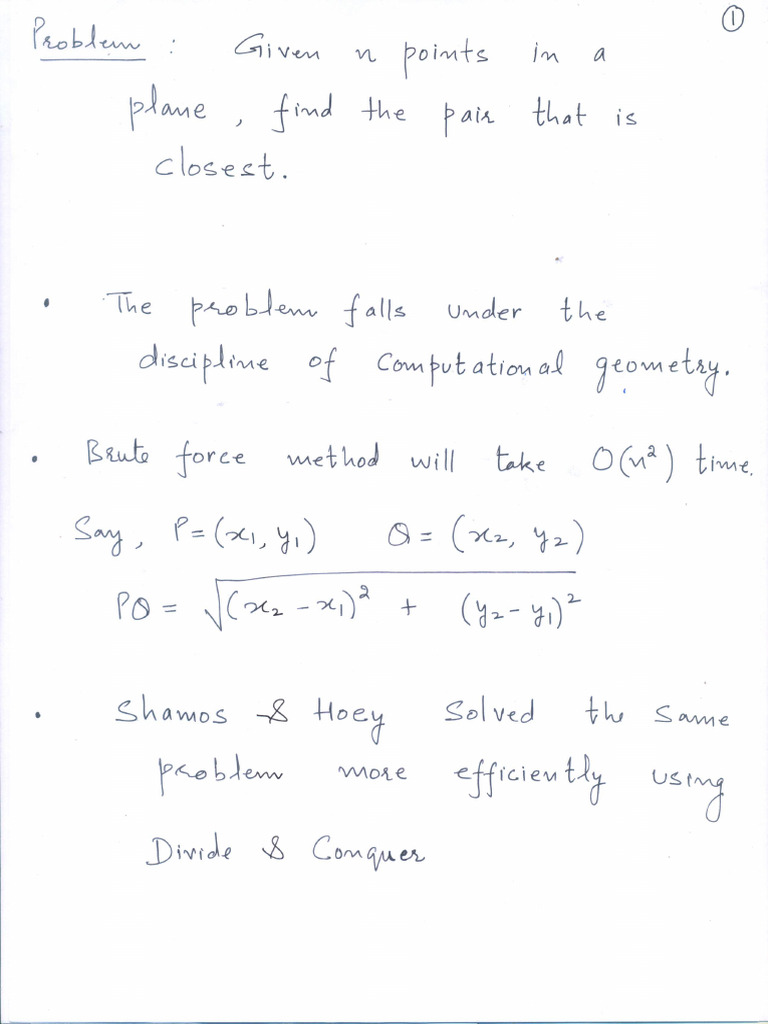 ①
Problem : Given n points in a
plane, find the pair that is
closest.
• The problem falls under the
discipline of computational geometry.
• Brute force method will take O(n²) time.
Say, P = (x₁, y₁) Q = (x₂, y₂)
PQ = √((x₂ - x₁)² + (y₂ - y₁)²)
• Shamos & Hoey solved the same
problem more efficiently using
Divide & Conquer